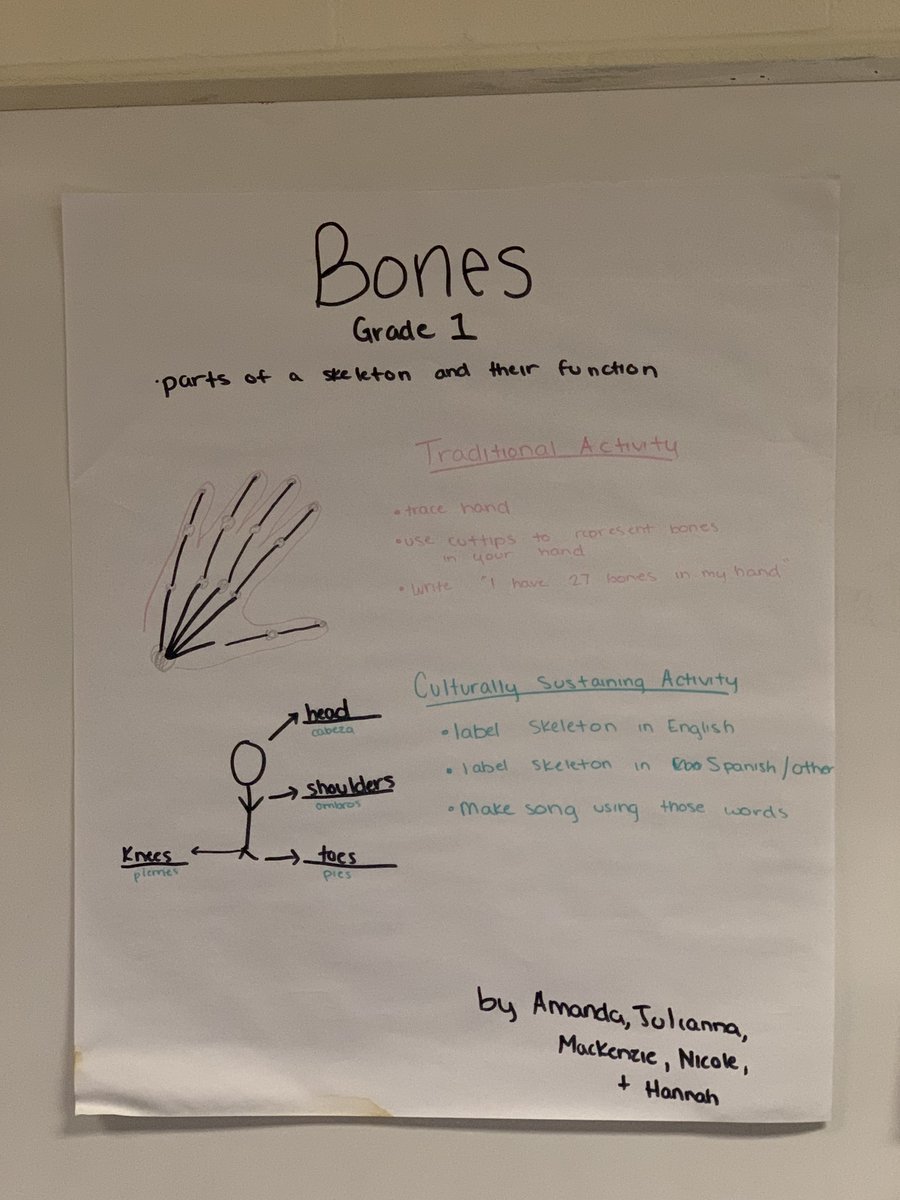 Bones
Grade 1
·parts of a skeleton and their function
Traditional Activity
•trace hand
•use cuttips to represent bones
in your hand
•write "I have 27 bones in my hand"
Culturally Sustaining Activity
•label skeleton in English
•label skeleton in Spanish/other
•Make song using those words
head
cabeza
shoulders
ombros
Knees
piernes
toes
pies
by Amanda, Julianna,
Mackenzie, Nicole,
+ Hannah